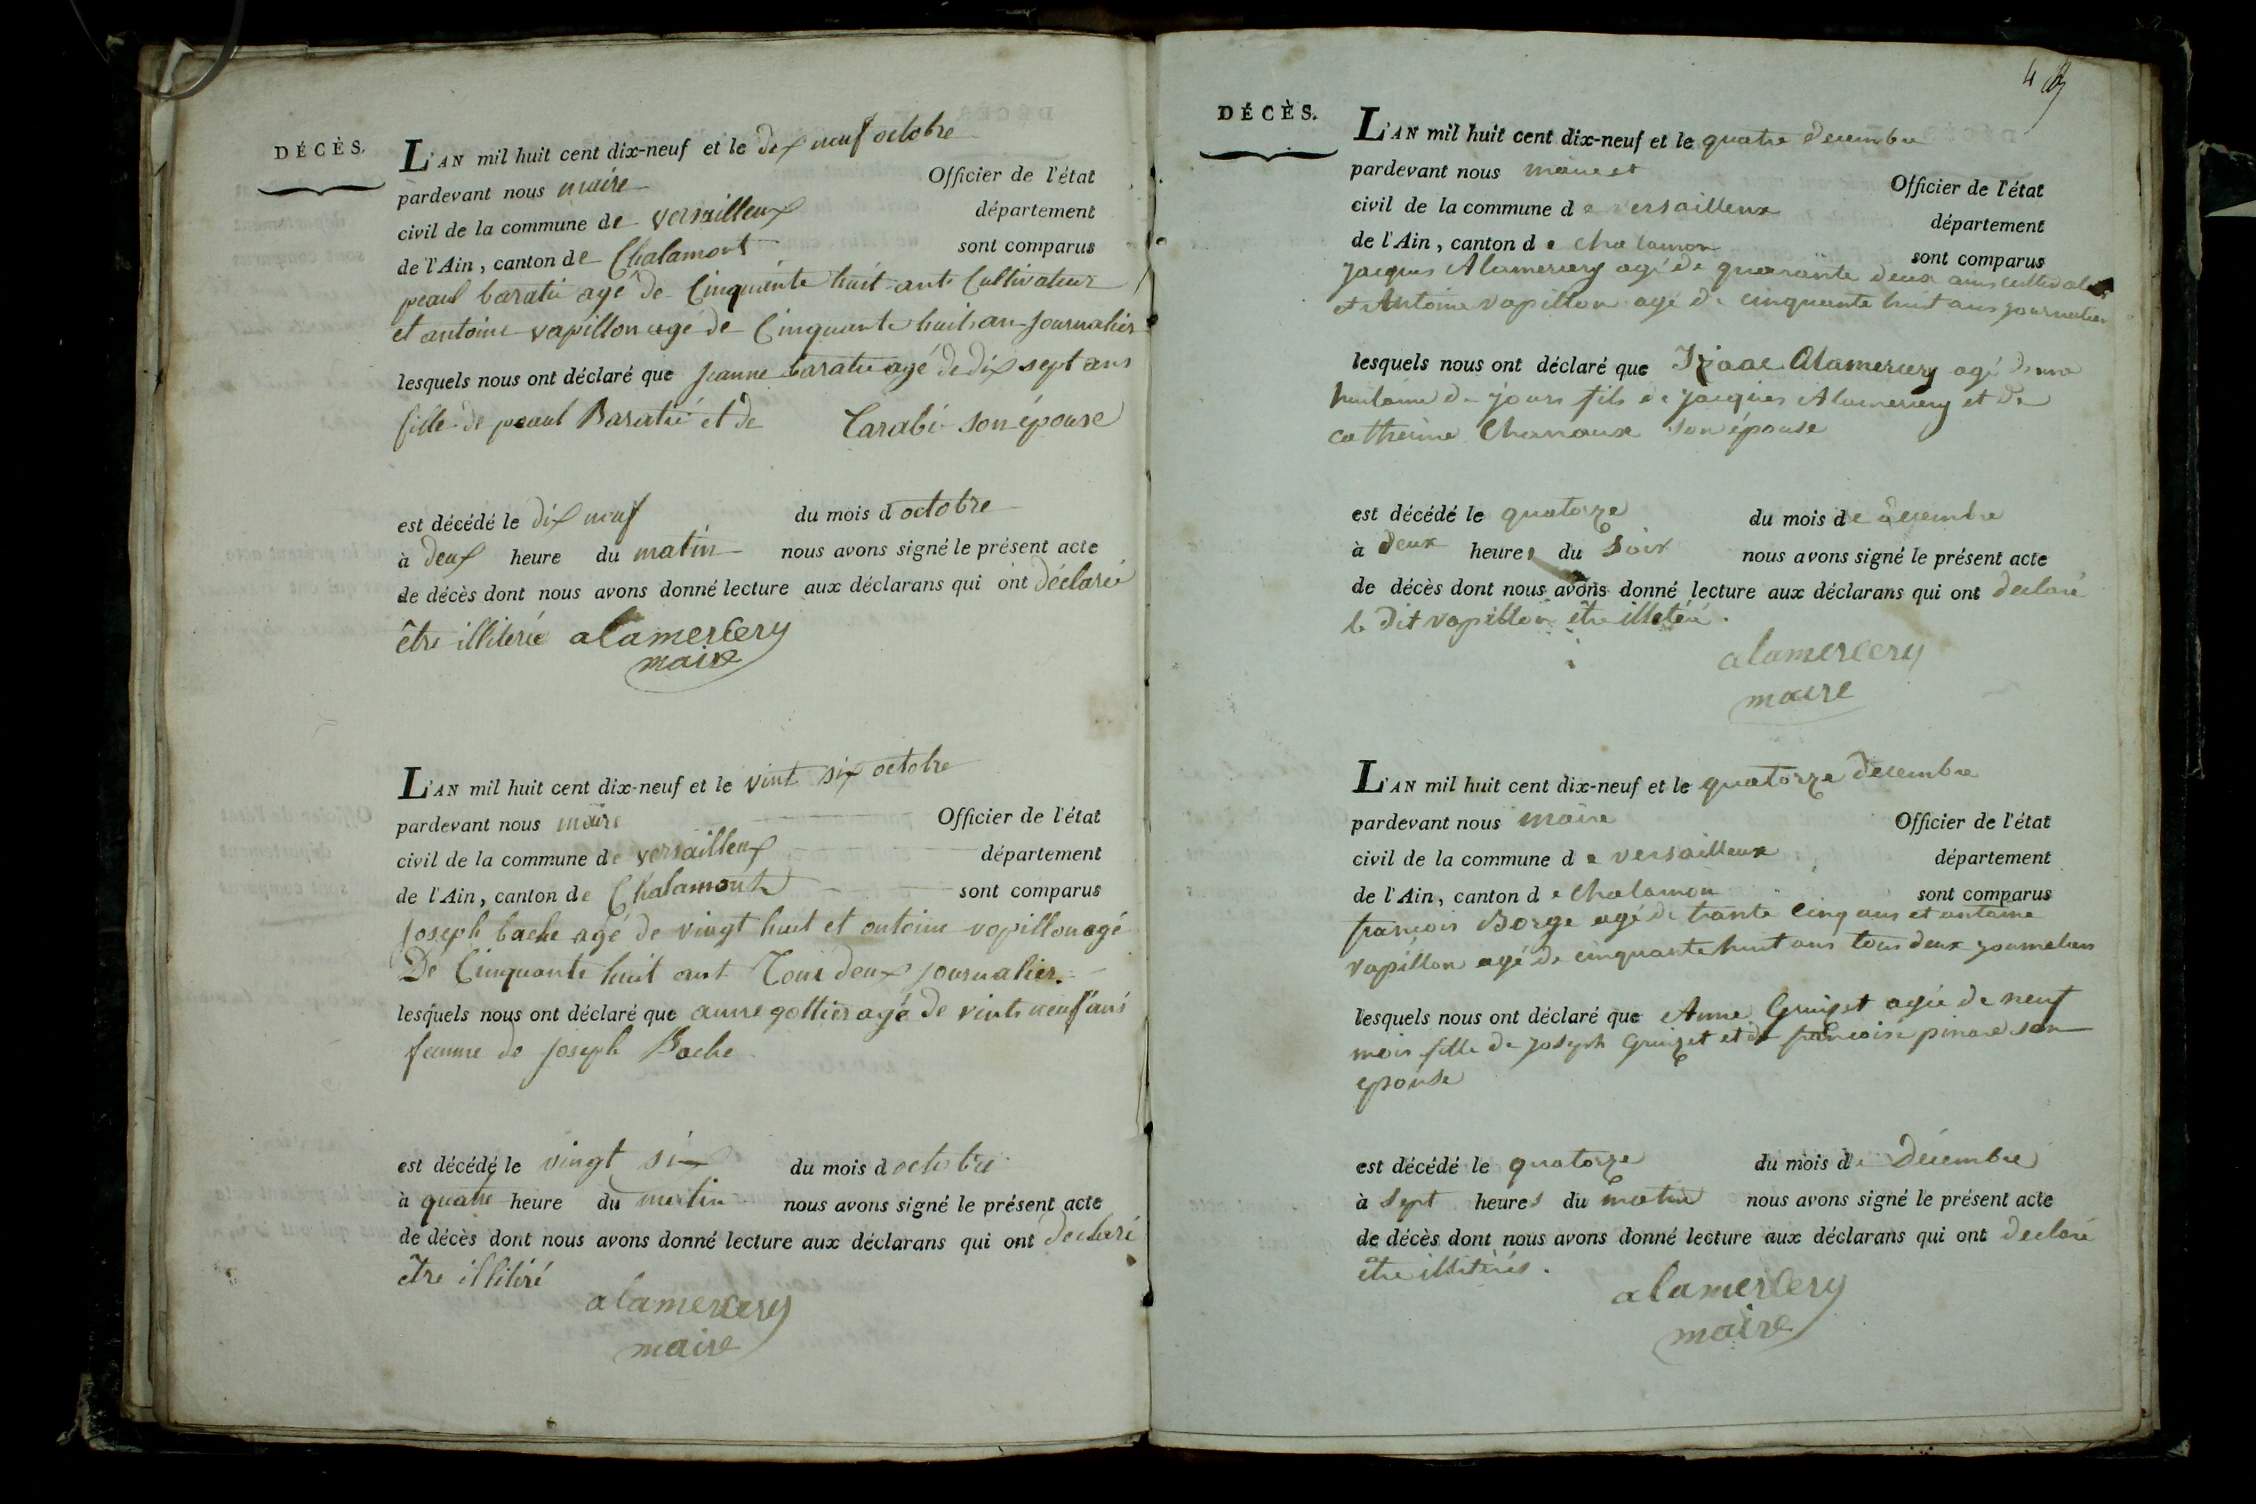 DÉCÈS.
L'AN mil huit cent dix-neuf et le dix neuf octobre
pardevant nous maire Officier de l'état
civil de la commune de versailleux département
de l'Ain, canton de Chalamont sont comparus
peaul baratié agé de Cinquente huit ants Cultivateur
et antoine vapillon agé de Cinquante huit an journalier
lesquels nous ont déclaré que jeanne baratié agé de dix sept ans
fille de peaul Baratié et de Carabi son épouse
est décédé le dix neuf du mois d octobre
à deux heure du matin nous avons signé le présent acte
de décès dont nous avons donné lecture aux déclarans qui ont déclaré
être illiterée alamercery
maire
L'AN mil huit cent dix-neuf et le vint six octobre
pardevant nous maire Officier de l'état
civil de la commune de versailleux département
de l'Ain, canton de Chalamont sont comparus
joseph bache agé de vingt huit et antoine vapillon agé
De Cinquante huit ant Tour deux journalier.
lesquels nous ont déclaré que anne gottier agé de vints neuf ans
femme de joseph Bache
est décédé le vingt six du mois d octobre
à quatre heure du matin nous avons signé le présent acte
de décès dont nous avons donné lecture aux déclarans qui ont declaré
être illitéré
alamercery
maire
4
DÉCÈS.
L'AN mil huit cent dix-neuf et le quatre decembre
pardevant nous maire Officier de l'état
civil de la commune d e versailleux département
de l'Ain, canton d e chalamon sont comparus
jacques Alamercery agé de quarante deux ans
et Antoine vapillon agé de cinquante huit ans journalier
lesquels nous ont déclaré que Izaac Alamercery agé d'une
huitaine de jours fils de jacques Alamercery et de
catherine Chanaux son épouse
est décédé le quatorze du mois de decembre
à deux heures du soir nous avons signé le présent acte
de décès dont nous avons donné lecture aux déclarans qui ont declaré
le dit vapillon être illetéré.
alamercery
maire
L'AN mil huit cent dix-neuf et le quatorze decembre
pardevant nous maire Officier de l'état
civil de la commune d e versailleux département
de l'Ain, canton d e chalamon sont comparus
francois Borge agé de trante cinq ans et antoine
vapillon agé de cinquante huit ans tous deux journaliers
lesquels nous ont déclaré que Anne Gringet agée de neuf
mois fille de joseph Gringet et de francoise pinard son
epouse
est décédé le quatorze du mois de Décembre
à sept heures du matin nous avons signé le présent acte
de décès dont nous avons donné lecture aux déclarans qui ont declaré
être illiterés.
alamercery
maire